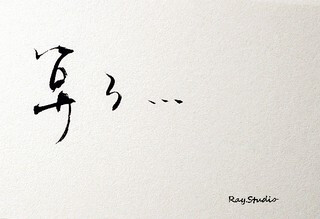 算了...
Ray.Studio